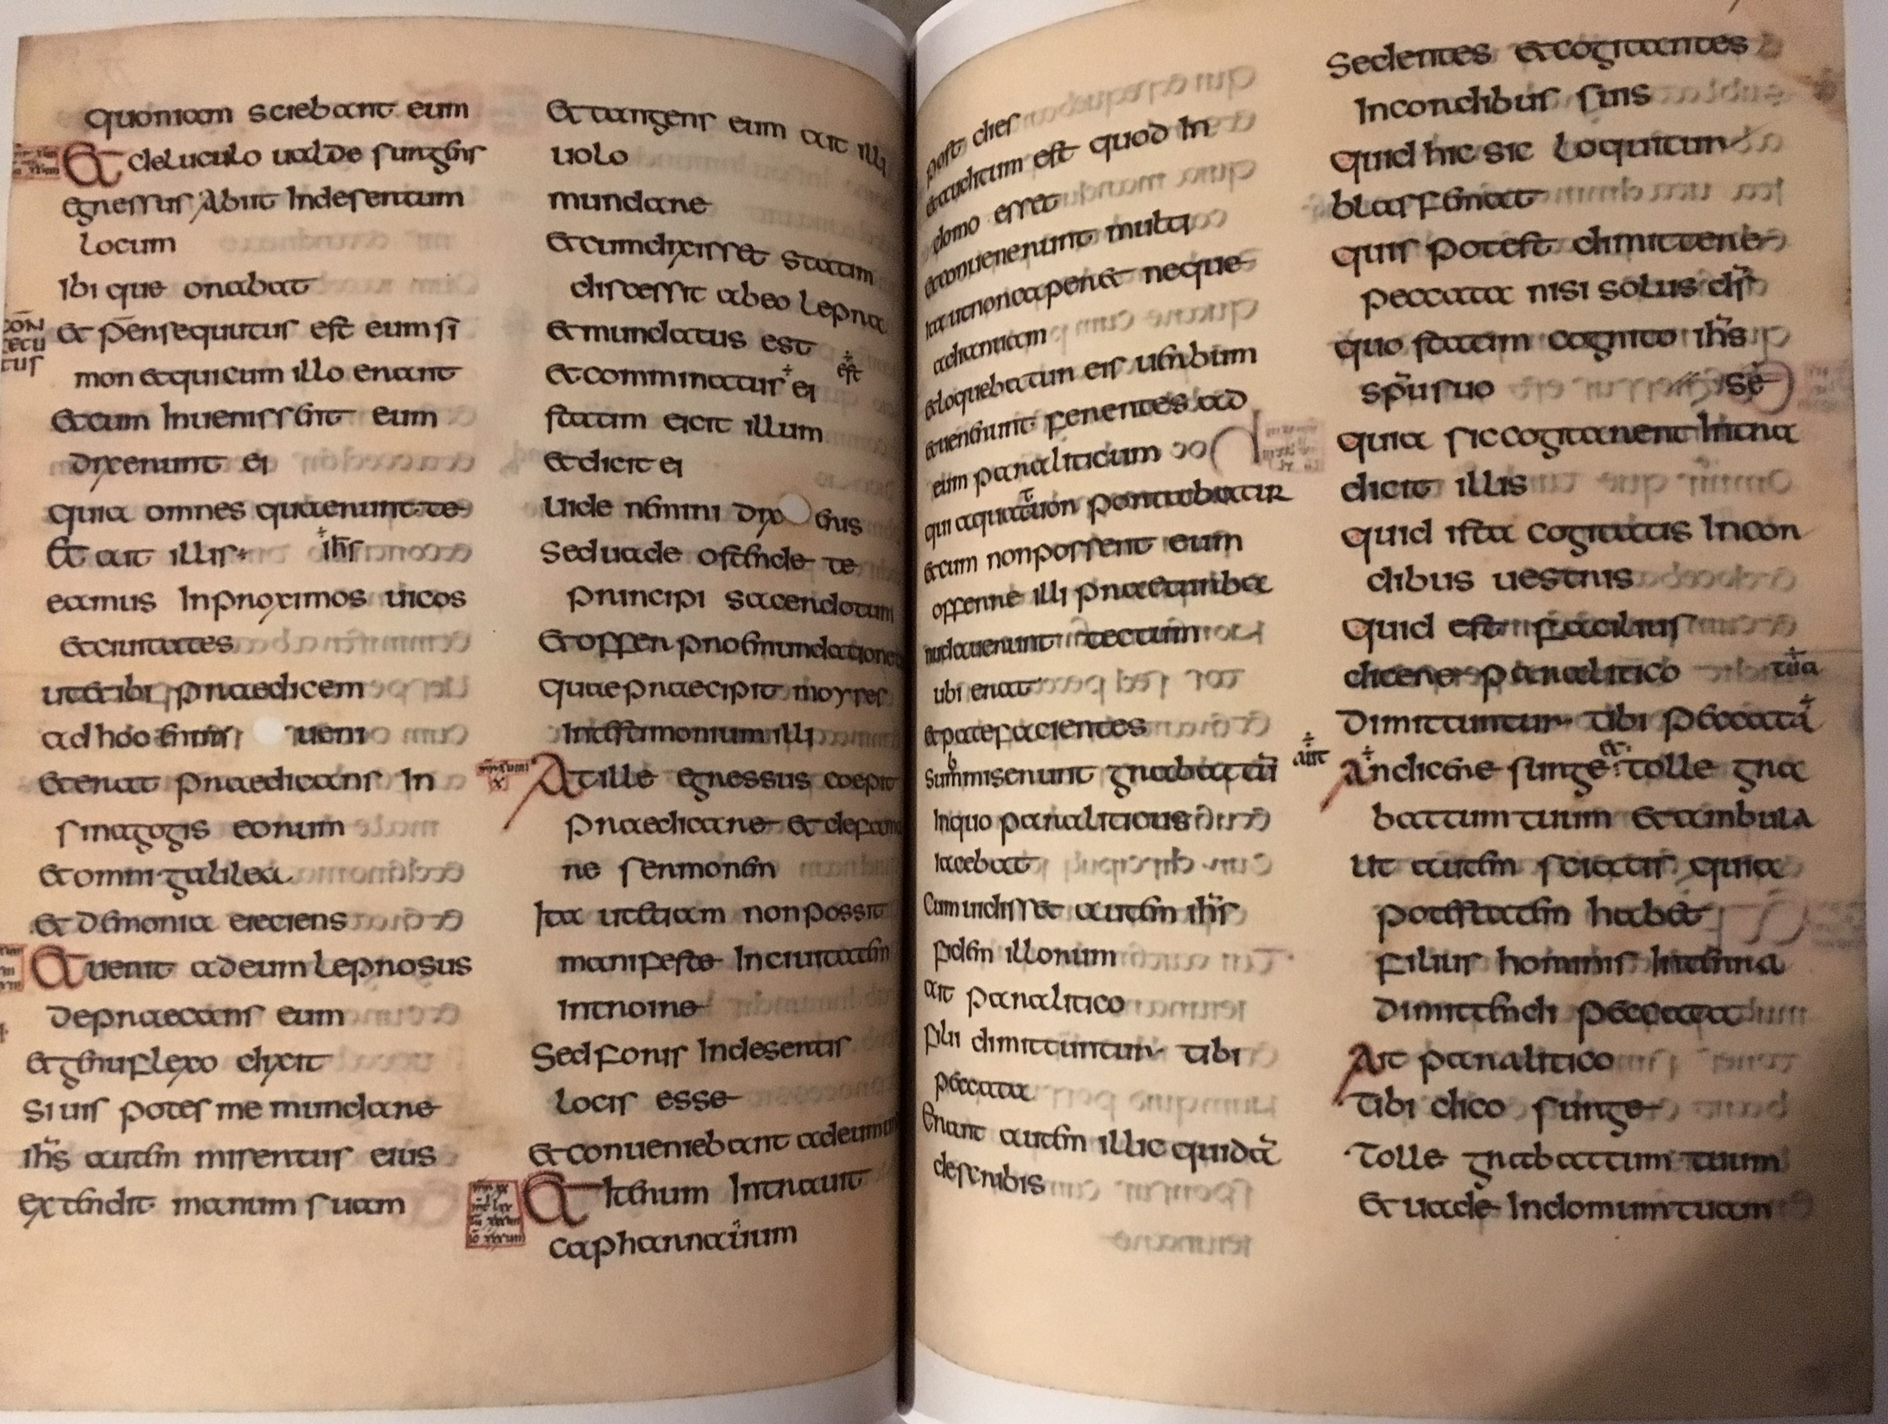 quoniam sciebant eum
Et deluculo ualde surgens
egressus abiit Indesertum
locum
Ibi que orabat
et persequutus est eum si
CON
SECU
TUS
mon et qui cum illo erant
et cum Inuenissent eum
dixerunt ei
quia omnes quaerunt te
Et ait illis ihs
eamus Inproximos uicos
et ciuitates
ut et ibi praedicem
ad hoc enim ueni
et erat praedicans In
sinagogis eorum
et omni galilea
et demonia eieciens
Et uenit ad eum leprosus
depraecans eum
et genuflexo dixit
Si uis potes me mundare
ihs autem misertus eius
extendit manum suam
Et tangens eum ait illi
uolo
mundare
et cum dixisset statim
discessit ab eo lepra
et mundatus est
et comminatus ei
est
statim eicit illum
et dicit ei
Uide nemini dixeris
Sed uade ostende te
principi sacerdotum
Et offer pro emundatione
quae praecipit moyses
Intestimonium illi
At ille egressus coepit
praedicare et defama
re sermonem
Ita ut etiam non possit
manifeste Inciuitatem
Introire
Sed foris Indesertis
locis esse
et conueniebant ad eum
Et Iterum Intrauit
capharnauum
post dies
et auditum est quod In
domo esset
et conuenerunt multi
Ita ut non caperet neque
ad ianuam
et loquebatur eis uerbum
et uenerunt ferentes ad
eum paraliticum
qui a quatuor portabatur
et cum non possent eum
offerre illi prae turba
nudauerunt tectum
ubi erat
et patefacientes
Summiserunt grabattum
Inquo paraliticus
Iacebat
Cum uidisset autem ihs
fidem illorum
ait paralitico
fili dimittuntur tibi
peccata
Erant autem illic quida
de scribis
Sedentes et cogitantes
Incordibus suis
quid hic sic loquitur
blasfemat
quis potest dimittere
peccata nisi solus ds
quo statim cognito ihs
spu suo
quia sic cogitarent Intra se
dicit illis
quid ista cogitatis Incor
dibus uestris
Quid est facilius
dicere paralitico
Dimittuntur tibi peccata tua
aut
An dicere surge et tolle gra
battum tuum et ambula
Ut autem sciatis quia
potestatem habet
filius hominis Interra
Dimittendi peccata
Ait paralitico
Tibi dico surge
Tolle grabattum tuum
et uade Indomum tuam